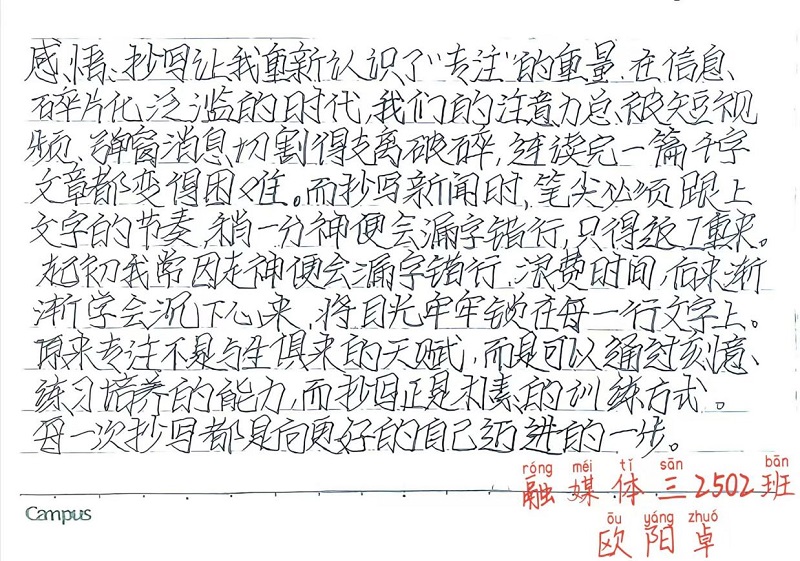 感悟、抄写让我重新认识了“专注”的重量。在信息、
碎片化泛滥的时代,我们的注意力总被短视
频、弹窗消息切割得支离破碎,连读完一篇千字
文章都变得困难。而抄写新闻时,笔尖必须跟上
文字的节奏,稍一分神便会漏字错行,只得返工重来。
起初我常因走神便会漏字错行,浪费时间,后来渐
渐学会沉下心来,将目光牢牢锁在每一行文字上。
原来专注不是与生俱来的天赋,而是可以通过刻意、
练习培养的能力,而抄写正是朴素的训练方式。
每一次抄写都是向更好的自己迈进的一步。
róng méi tǐ sān bān
融媒体三2502班
ōu yáng zhuó
欧阳卓
Campus